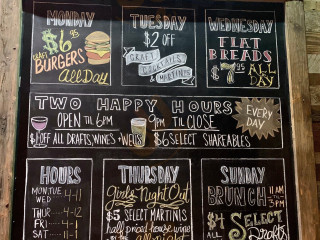 MONDAY
$6.95
CRAFT
BURGERS
All Day
TUESDAY
$2 OFF
CRAFT
COCKTAILS
& MARTINIS
WEDNESDAY
FLAT
BREADS
$7.95 ALL
DAY
TWO HAPPY HOURS
OPEN TIL 6PM
9PM TIL CLOSE
$1 OFF ALL DRAFTS, WINES + WELLS
$6 SELECT SHAREABLES
EVERY
DAY
HOURS
MON, TUE
WED 4-11
THUR 4-12
FRI
SAT
THURSDAY
Girls Night Out
$5 SELECT MARTINIS
half priced house wine
all night
SUNDAY
BRUNCH 11AM
3PM
$4 SELECT
ALL Drafts